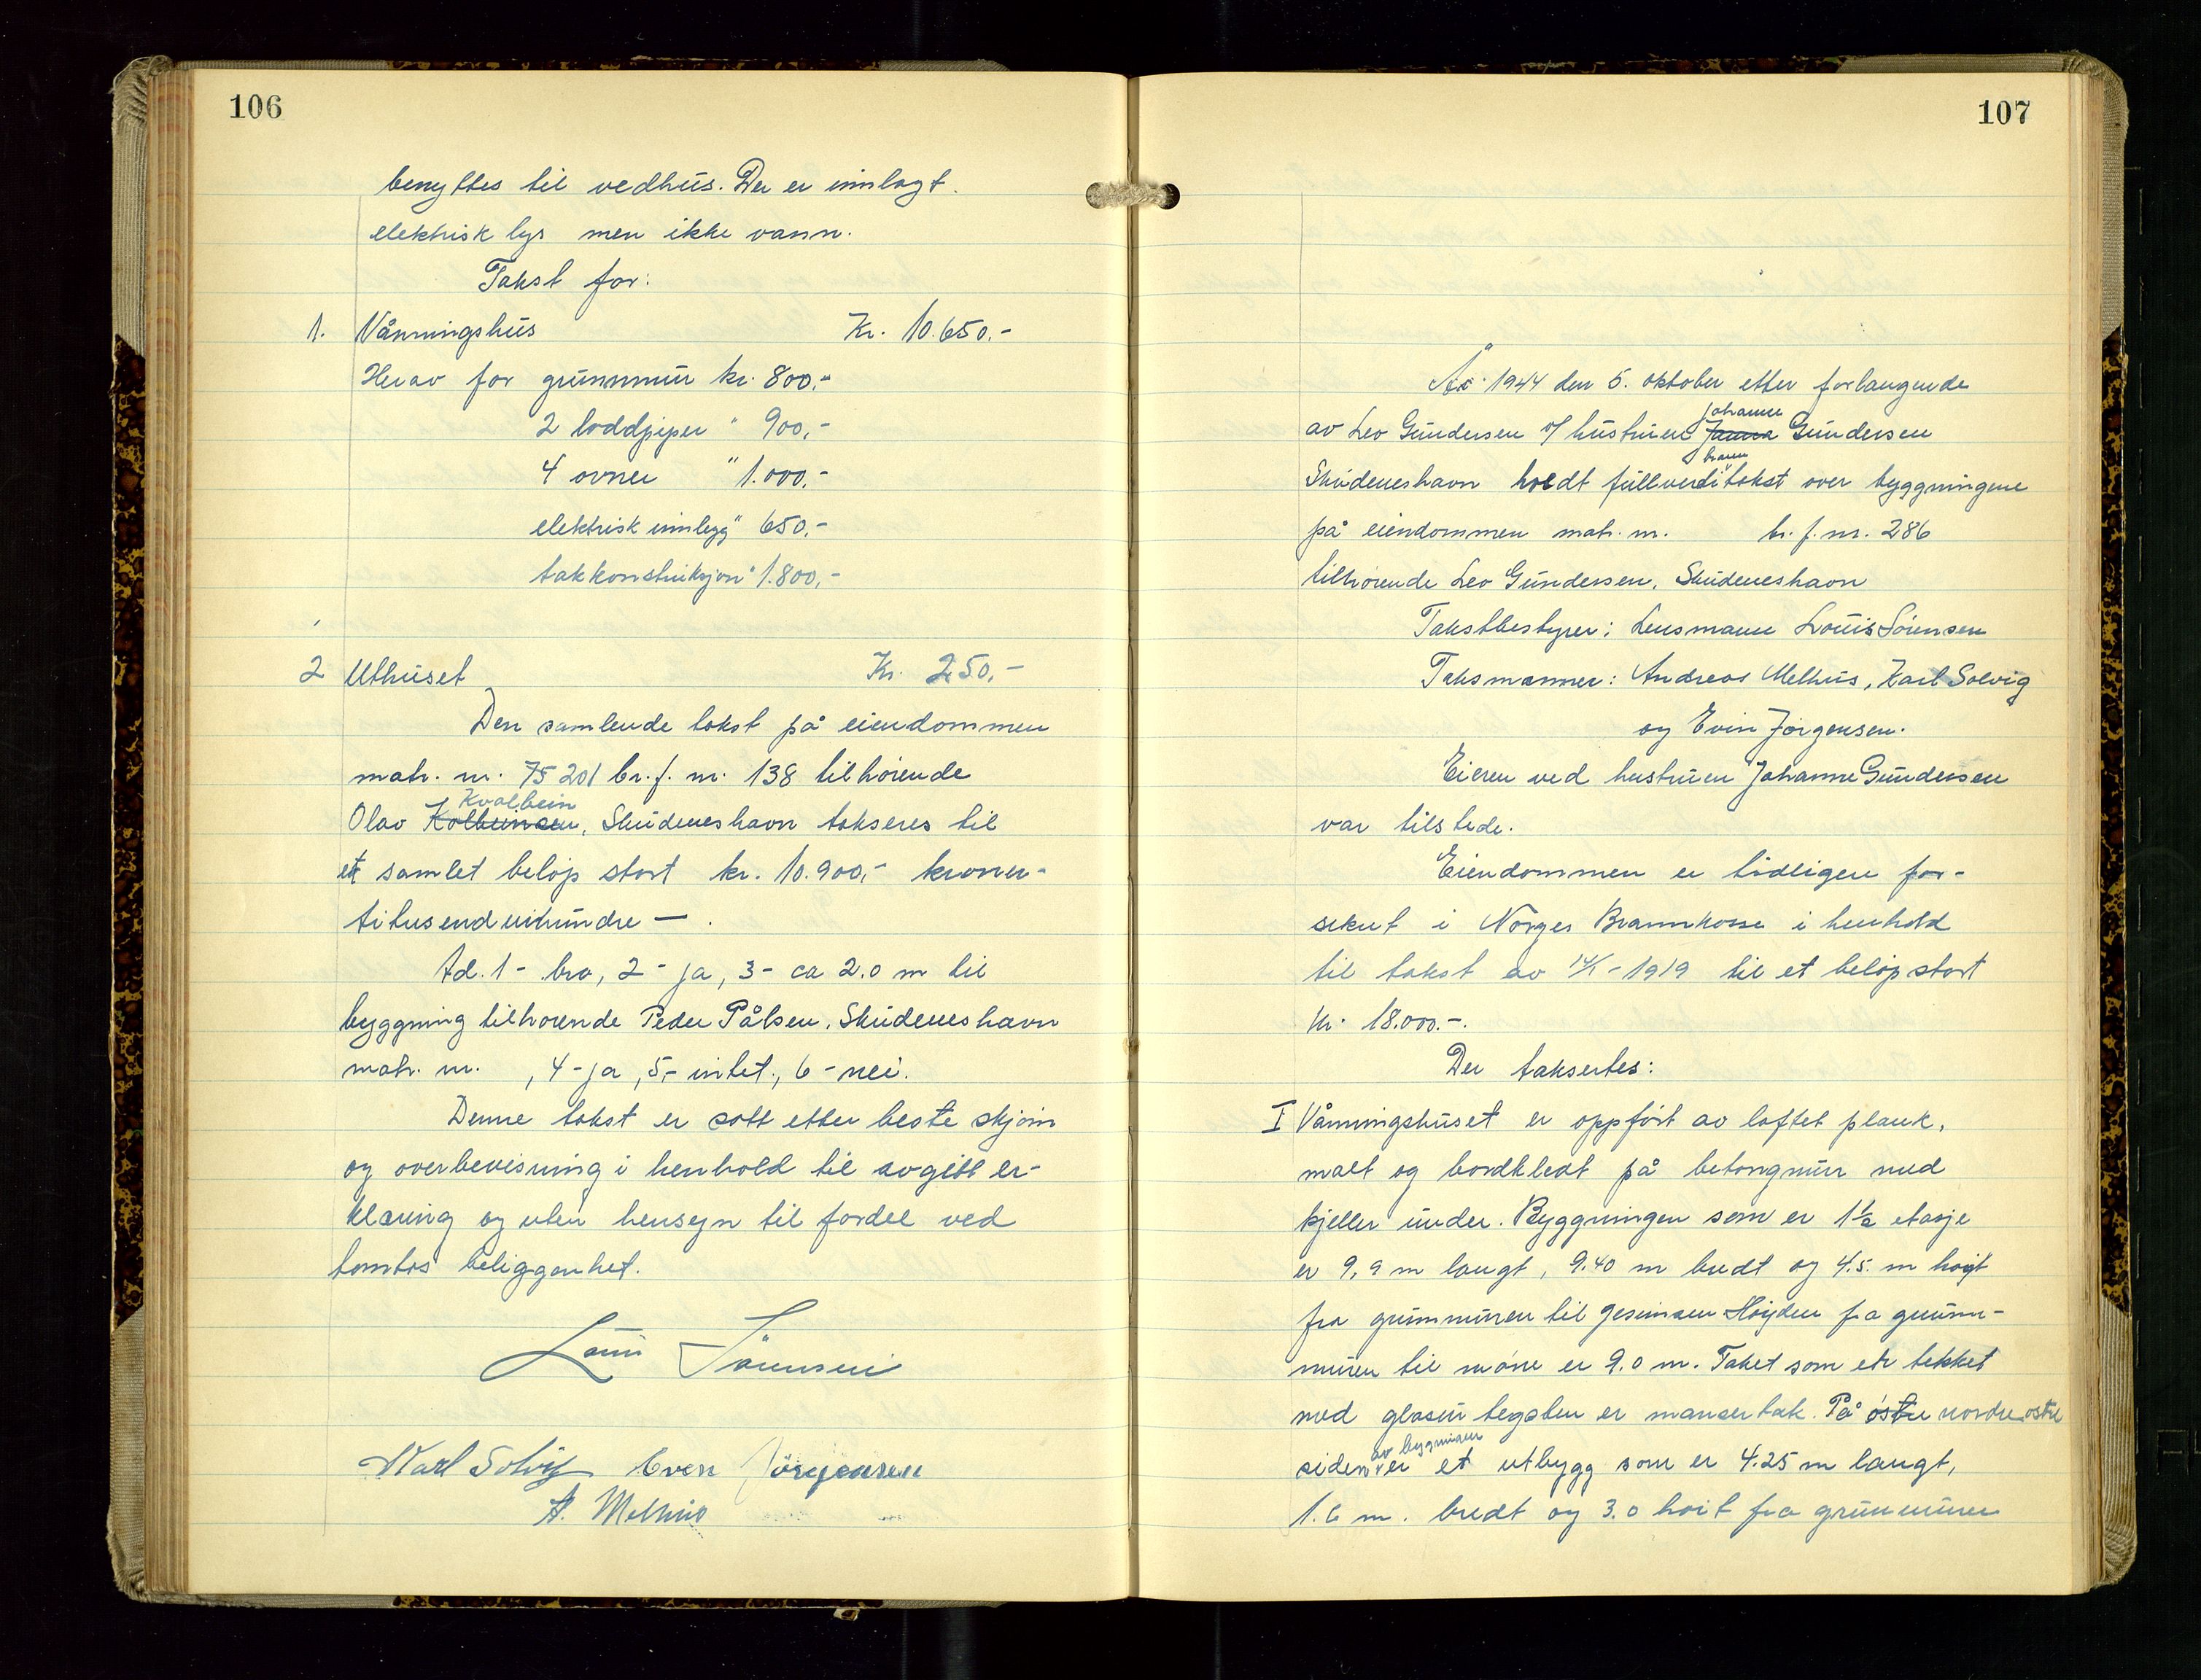 106
benyttes til vedhus. Der er innlagt
elektrisk lys men ikke vann.
Takst for:
1. Våningshus Kr. 10.650.-
Herav for grunnmur kr. 800,-
2 loddpiper " 900,-
4 ovner " 1.000,-
elektrisk innlegg " 650,-
takkonstruksjon " 1.800,-
2 Uthuset Kr. 250,-
Den samlende takst på eiendommen
matr. nr. 75 201 br.f. nr. 138 tilhörende
Kvalbein
Olav Kolbeinsen, Skudeneshavn takseres til
et samlet belöp stort kr. 10.900,- kroner-
titusendnihundre — .
Ad. 1 - bra, 2 - ja, 3 - ca 2.0 m til
byggning tilhörende Peder Pålsen, Skudeneshavn
matr. nr. , 4 - ja, 5,- intet., 6 - nei.
Denne takst er satt etter beste skjönn
og overbevisning i henhold til avgitt er-
klæring og uten hensyn til fordel ved
tomtas beliggenhet.
Louis Sörensen
Karl Solvig Even Jörgensen
A. Melhus
107
År 1944 den 5. oktober etter forlangende
Johanne
av Leo Gundersen v/ hustruen Janna Gundersen
brann
Skudeneshavn holdt fullverditakst over byggningene
på eiendommen matr. nr. br. f. nr. 286
tilhörende Leo Gundersen, Skudeneshavn
Takstbestyrer: Lensmann Louis Sörensen
Taksmenner: Andreas Melhus, Karl Solvig
og Evin Jörgensen.
Eieren ved hustruen Johanne Gundersen
var tilstede.
Eiendommen er tidligere for-
sikret i Norges Brannkasse i henhold
til takst av 14/1 - 1919 til et belöp stort
Kr. 18.000.-.
Der taksertes:
I Våningshuset er oppfört av laftet plank,
malt og bordkledt på betongmur med
kjeller under. Byggningen som er 1 1/2 etasje
er 9,9 m langt, 9.40 m bredt og 4.5. m höyt
fra grunnmuren til gesimsen Höyden fra grunn-
muren til möne er 9.0 m. Taket som er tekket
med glasur tegsten er mansertak. På östre nordre östre
av bygningen
siden er et utbygg som er 4.25 m langt,
1.6 m. bredt og 3.0 höit fra grunnmuren